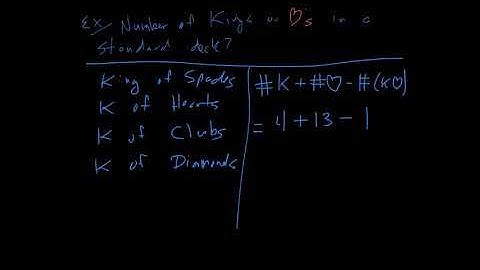 Ex/ Number of Kings or ♡'s in a
standard deck?
King of Spades
K of Hearts
K of Clubs
K of Diamonds
#K + #♡ - #(K♡)
= 4 + 13 - 1